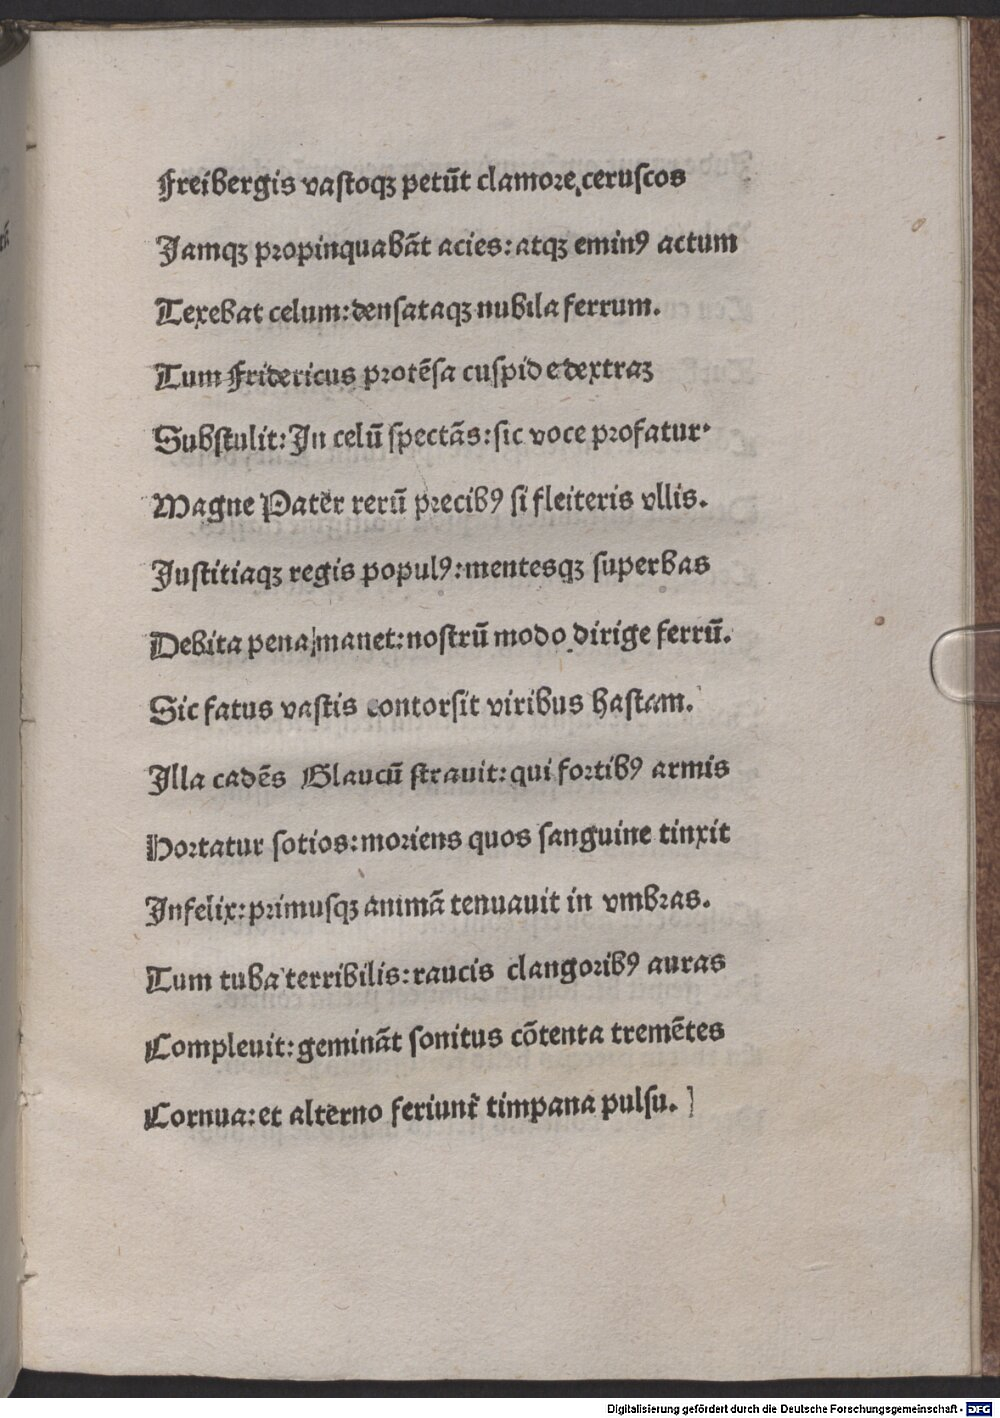 Freibergis vaſtoqꝫ petūt clamore ceruſcos
Jamqꝫ propinquabāt acies: atqꝫ eminꝰ actum
Texebat celum: denſataqꝫ nubila ferrum.
Tum Fridericus protēſa cuſpide dextraꝫ
Subſtulit: In celū ſpectās: ſic voce profatur·
Magne Pater rerū precibꝰ ſi fleiteris vllis.
Juſtitiaqꝫ regis populꝰ: mentesqꝫ ſuperbas
Debita pena manet: noſtrū modo dirige ferrū.
Sic fatus vaſtis contorſit viribus haſtam.
Illa cadēs Glaucū ſtrauit: qui fortibꝰ armis
Hortatur ſotios: moriens quos ſanguine tinxit
Infelix: primuſqꝫ animā tenuauit in vmbras.
Tum tuba terribilis: raucis clangoribꝰ auras
Compleuit: gemināt ſonitus cōtenta tremētes
Cornua: et alterno feriunt timpana pulſu.
Digitalisierung gefördert durch die Deutsche Forschungsgemeinschaft - DFG